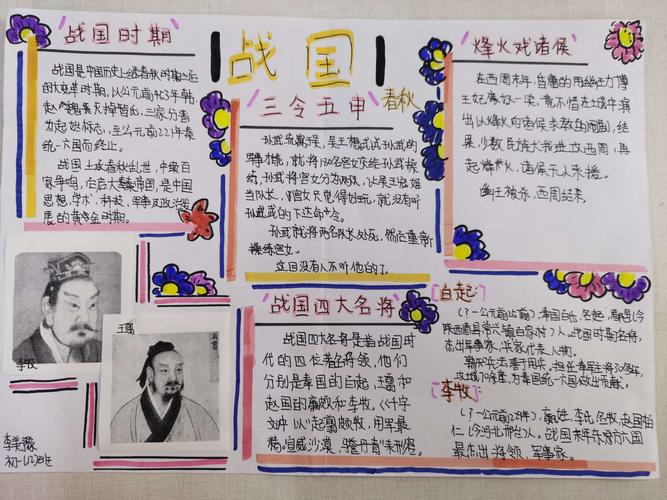 战国时期
战国是中国历史上继春秋时期之后
的大变革时期，以公元前453年韩
赵、魏
三家分晋
为起始标志，至公元前221年秦
统一六国而终止。
战国上承春秋乱世，中续百
家争鸣，
是中国
思想、学术、科技、军事及政治发
展的黄金时期。
李牧
王翦
李美
初一(2)班
战国
三令五申
春秋
孙武
吴王想试试孙武的
军事才能，就将180名宫女交给孙武操
练，孙武将宫女分为两队，让吴王宠姬
当队长，
宫女只觉得好玩，就没有听
孙武武的下达命令。
孙武就将两名队长处死，然后重新
操练宫女。
这回没有人不听他的了。
战国四大名将
战国四大名将是指战国时
代的四位著名将领，他们
分别是秦国的白起、王翦和
赵国的廉颇和李牧。《千字
文》以“起翦颇牧，用军最
精，宣威沙漠，
丹青”来形容。
烽火戏诸侯
在西周末年，昏庸的周幽王为博
王妃褒姒一笑，竟不惜在
演
出以烽火向诸侯求救的闹剧，结
果，少数民族犬戎进攻西周，再
起烽火，诸侯无人来援。
幽王被杀，西周结束。
[白起]:
(?一公元前257年)，秦国白氏，名起，郿邑(今
陕西眉县常兴镇白家村)人。战国时期名将，
杰出军事家、兵家代表人物。
善于用兵，担任秦军主将30多年，
攻城70余座，为秦国统一六国做出贡献。
[李牧]:
(?一公元前229年)，
李氏，名牧，赵国柏
仁(今河北邢台)人。战国末年东方六国
最杰出将领，军事家。